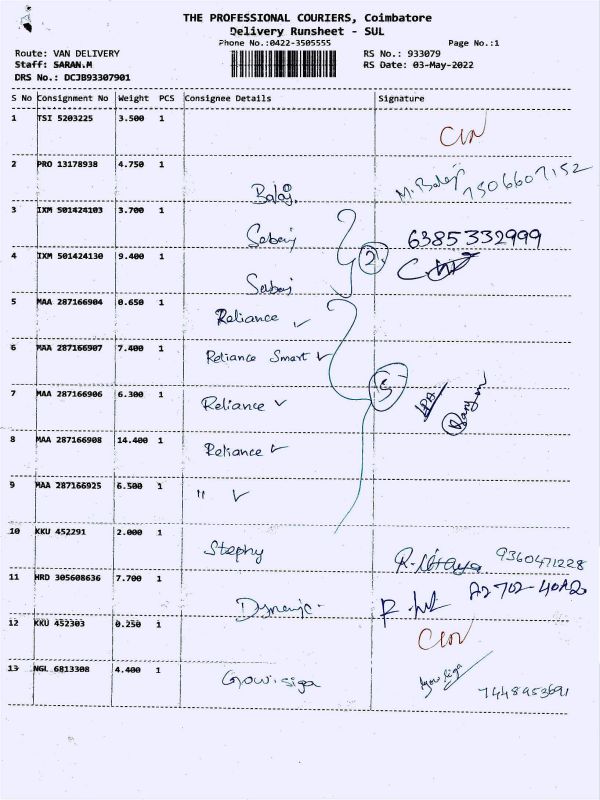 THE PROFESSIONAL COURIERS, Coimbatore
Delivery Runsheet - SUL
Phone No.:0422-3505555 Page No.:1
Route: VAN DELIVERY RS No.: 933079
Staff: SARAN.M RS Date: 03-May-2022
DRS No.: DCJB93307901
S No Consignment No Weight PCS Consignee Details Signature
1 TSI 5203225 3.500 1
2 PRO 13178938 4.750 1
Balaj. M. Balaj 7506607152
3 IXM 501424103 3.700 1
Sebaj 6385332999
2
4 IXM 501424130 9.400 1
Sebaj
5 MAA 287166904 0.650 1
Reliance
6 MAA 287166907 7.400 1
Reliance Smart
5
7 MAA 287166906 6.300 1
Reliance
8 MAA 287166908 14.400 1
Reliance
9 MAA 287166925 6.500 1
"
10 KKU 452291 2.000 1
Stephy 9360471228
11 HRD 305608636 7.700 1
Dymanic
12 KKU 452303 0.250 1
13 NGL 6813308 4.400 1
Gowsiga 7448953691